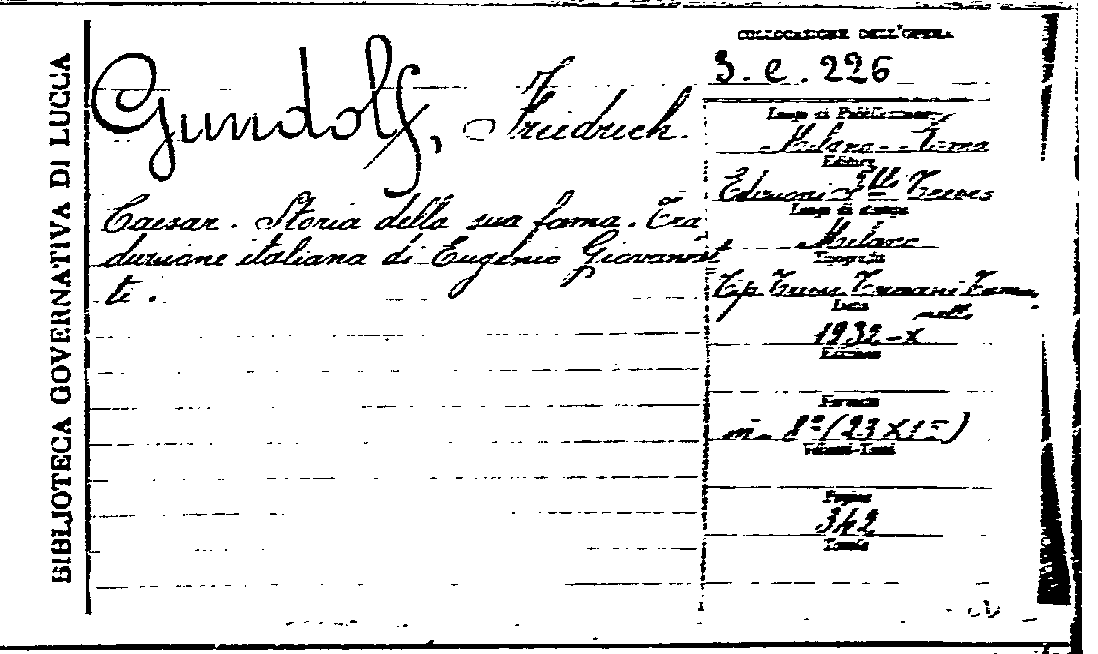 BIBLIOTECA GOVERNATIVA DI LUCCA
Gundolf, Friedrich.
Caesar. Storia della sua fama. Tra
duzione italiana di Eugenio Giovannet
ti.
COLLOCAZIONE DELL'OPERA
3. e. 226
Luogo di Pubblicazione
Milano - Roma
Editore
Edizioni F.lli Treves
Luogo di stampa
Milano
Tipografia
Tip. Treves Treccani Tumm
nelli
Data
1932-X
Edizione
Formato
in-8° (23 X
Volumi-Tomi
Pagine
342
Tavole